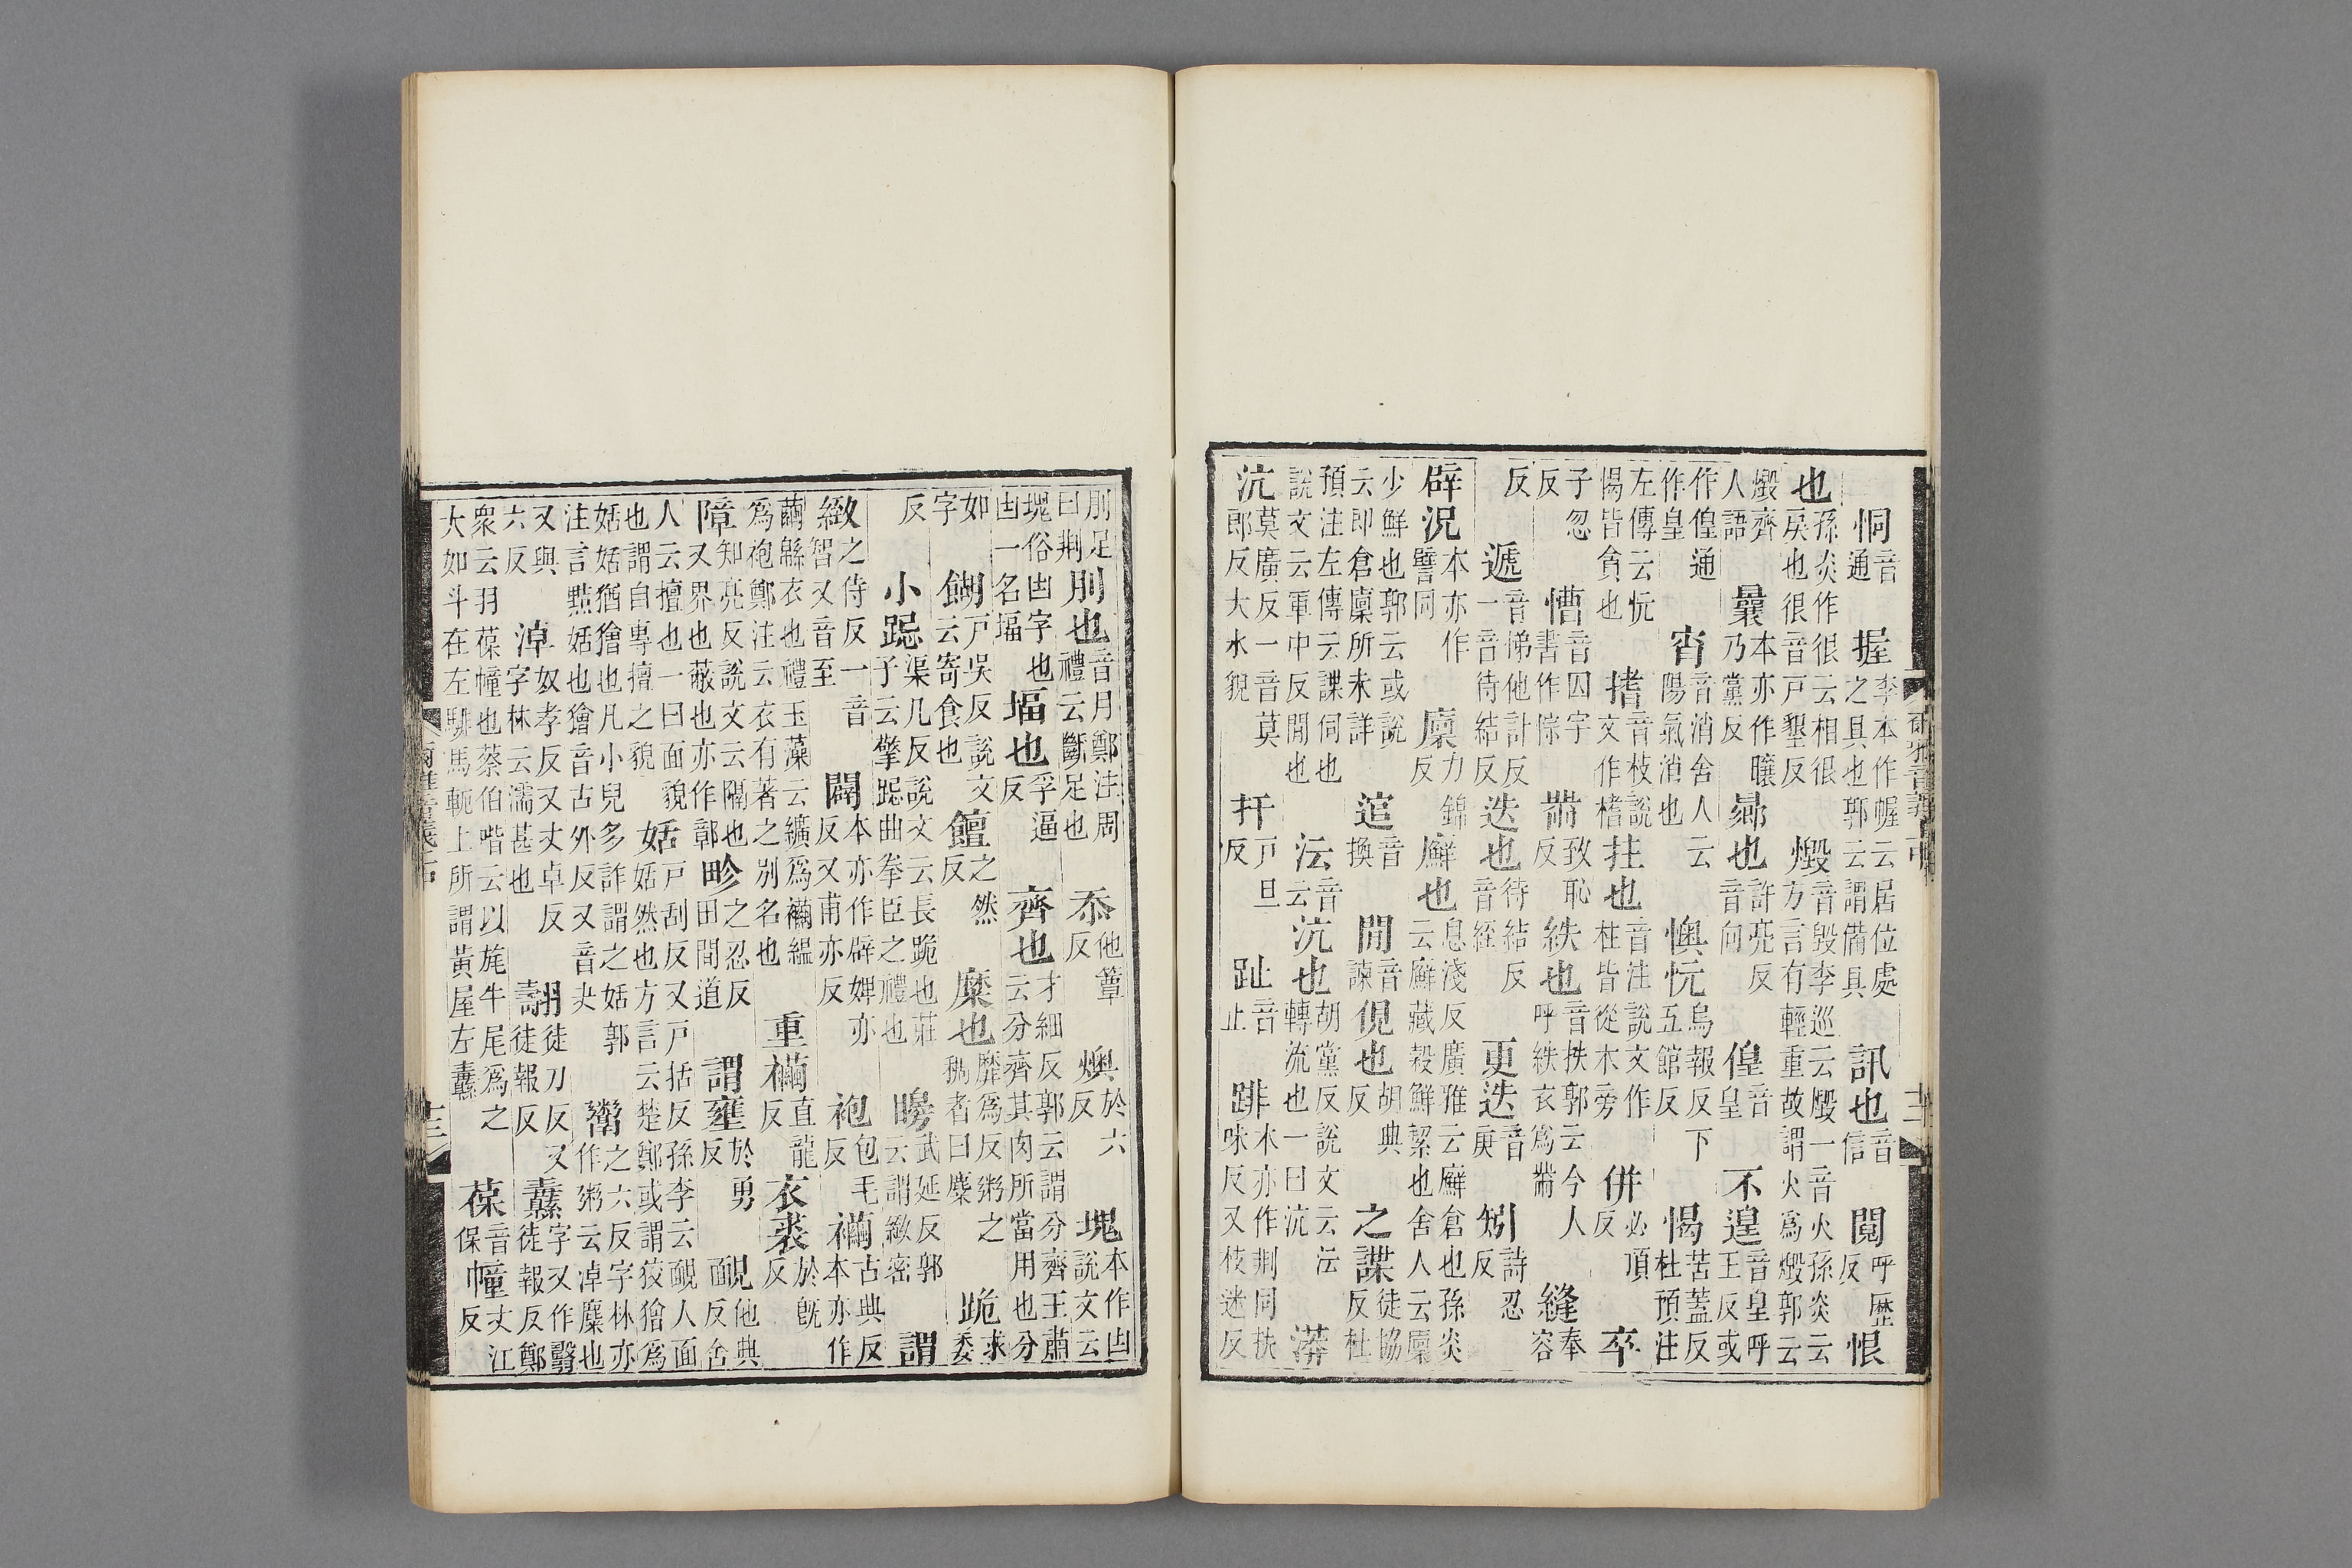 恫音通握李本作幄云居位處之具也郭云謂備具訊也音信鬩呼歷反恨
也孫炎作很云相很戾也很音戶墾反燬音毀李巡云燬一音火孫炎云方言有輕重故謂火爲燬郭云
燬齊人語曩本亦作乃黨反曏也許亮反音向偟音皇不遑音皇呼王反或
作偟通作皇宵音消舍人云陽氣消也懊忨烏報反下五館反愒苦蓋反杜預注
左傳云忨愒皆貪也搘音枝說文作榰拄也音注說文作柱皆從木旁併必頂反卒
子忽反慒音囚字書作悰黹致恥反紩也音抶郭云今人呼紩衣爲黹縫奉容
反遞音悌他計反一音待結反迭也待結反音絰更迭音庚矧詩忍反
辟況本亦作譬同廩力錦反廯也息淺反廣雅云廯倉也孫炎云廯藏穀鮮絜也舍人云廩
少鮮也郭云或說云即倉廩所未詳逭音換閒音諫俔也胡典反之諜徒協反杜
預注左傳云諜伺也說文云軍中反閒也沄音云沆也胡黨反說文云沄轉流也一曰沆漭
沆莫廣反一音莫郎反大水貌扞戶旦反趾音止䠊本亦作剕同扶味反又枝迷反
爾雅音義上 十二
刖足曰剕刖也音月鄭注周禮云斷足也忝他簟反燠於六反塊本作凷說文云
塊俗凷字也凷一名堛堛也孚逼反齊也才細反郭云謂分齊王肅云分齊其肉所當用也分
如字餬戶吳反說文云寄食也饘之然反糜也靡爲反粥之稠者曰糜跪求委
反小跽渠几反說文云長跪也莊子云擎跽曲拳臣之禮也矏武延反郭云謂緻密謂
緻之侍反一音智又音至闢本亦作辟婢亦反又甫亦反袍包毛反襺古典反本亦作
繭緜衣也禮玉藻云纊爲襺縕爲袍鄭注云衣有著之別名也重襺直龍反衣裘於旣反
障知亮反說文云隔也又界也蔽也亦作鄣畛之忍反田間道謂壅於勇反靦他典反舍
人云擅也一曰面貌也謂自專擅之貌姡戶刮反又戶括反孫李云靦人面姡然也方言云楚鄭或謂狡獪爲
姡姡猶獪也凡小兒多詐謂之姡郭注言黠姡也獪音古外反又音夬鬻之六反字林亦作粥云淖麋也
又與六反淖奴孝反又丈卓反字林云濡甚也翿徒刀反又徒報反纛字又作翳徒報反鄭
衆云羽葆幢也蔡伯喈云以旄牛尾爲之大如斗在左騑馬軛上所謂黃屋左纛葆音保幢丈江反
爾雅音義上 十三